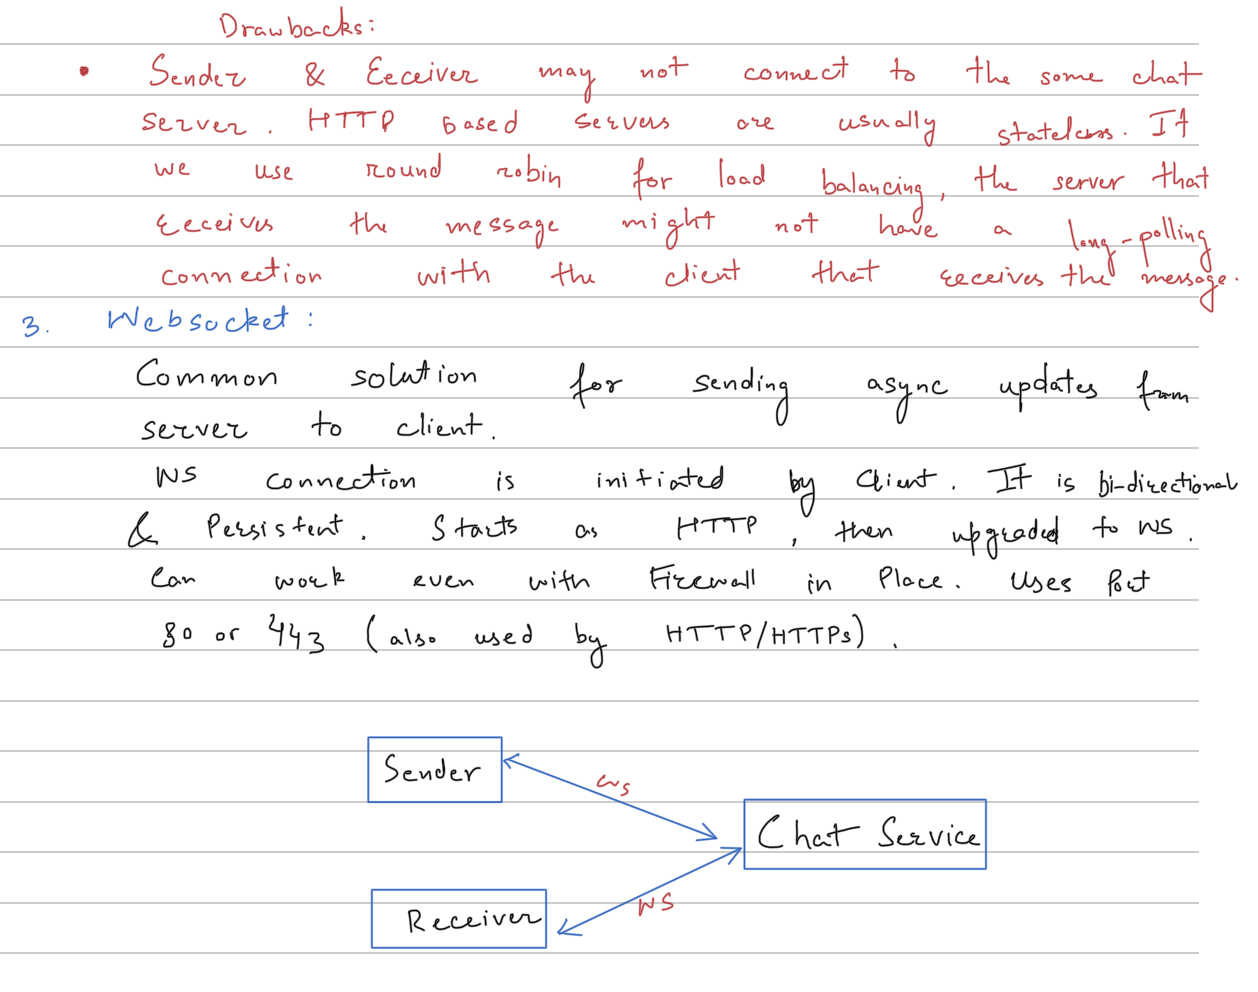 Drawbacks:
• Sender & Receiver may not connect to the same chat
server. HTTP based servers are usually stateless. If
we use round robin for load balancing, the server that
receives the message might not have a long-polling
connection with the client that receives the message.
3. Websocket:
Common solution for sending async updates from
server to client.
WS connection is initiated by Client. It is bi-directional
& Persistent. Starts as HTTP, then upgraded to WS.
Can work even with Firewall in Place. Uses Port
80 or 443 (also used by HTTP/HTTPs).
Sender
WS
Chat Service
WS
Receiver